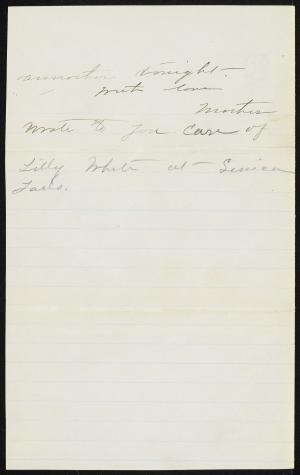 tonight.
with love
Mother
Wrote to you care of
Lilly White at Seneca
Falls.